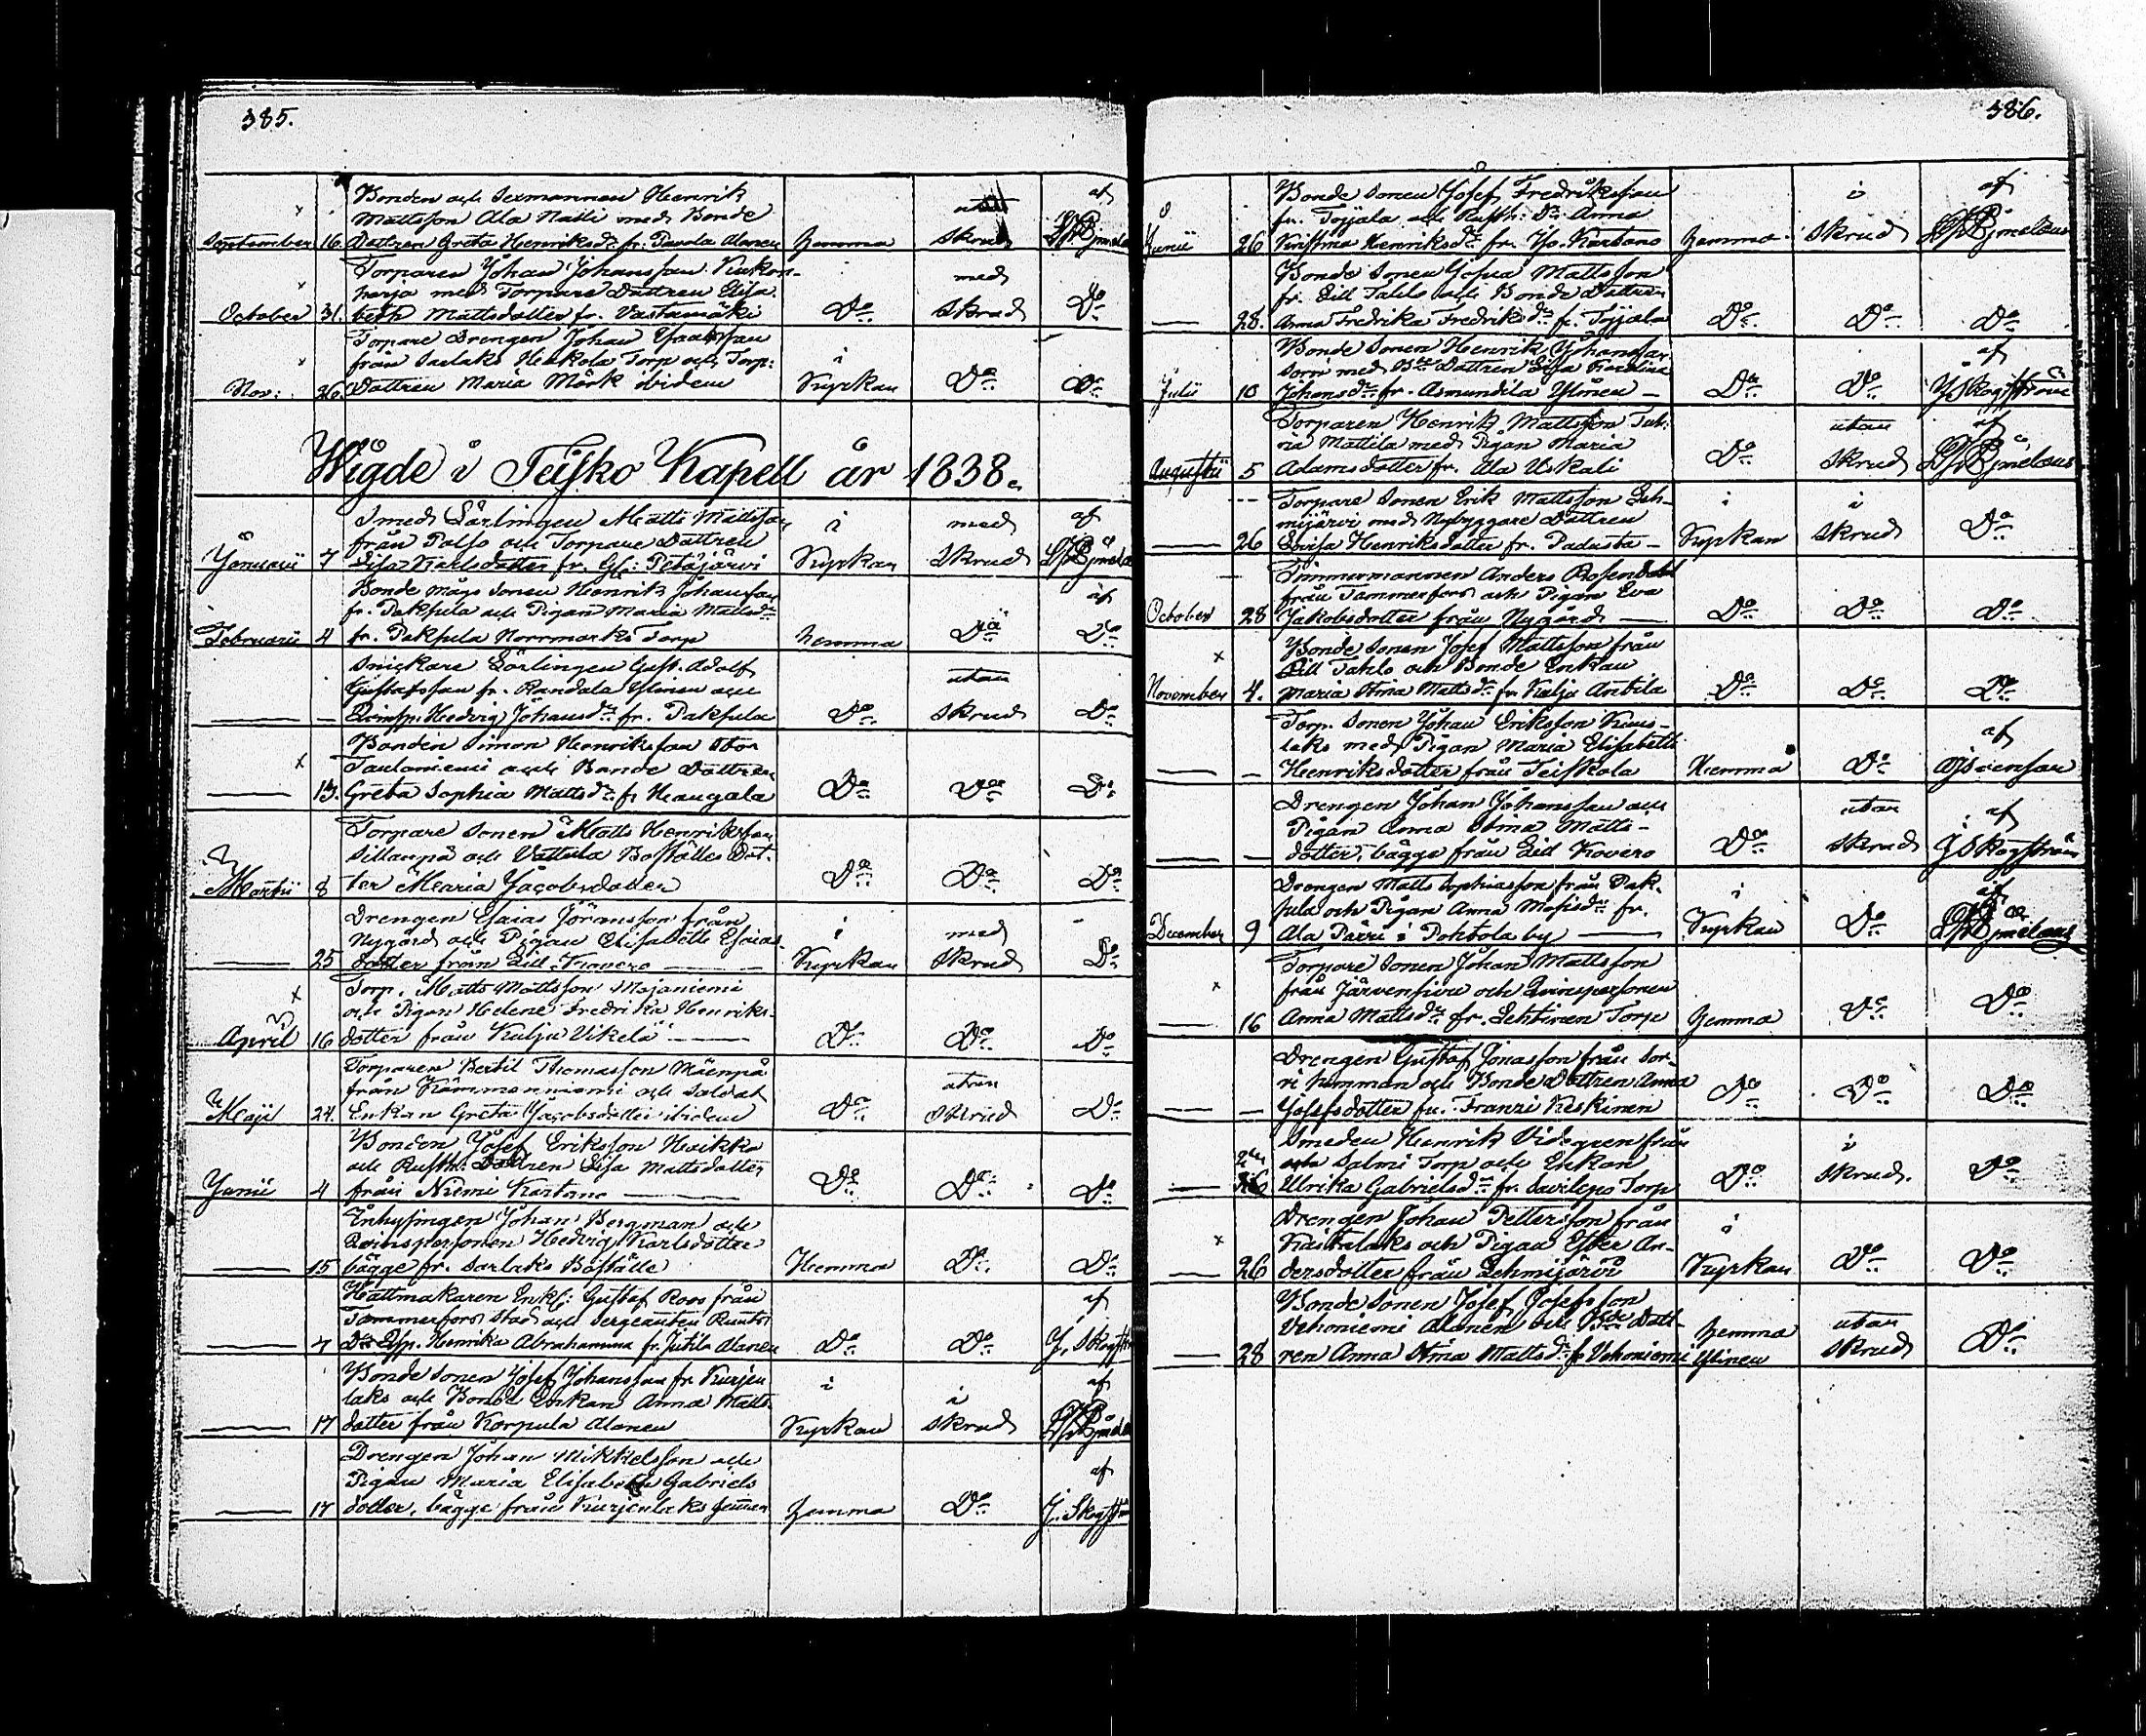 385.
Bonden och Sexmannen Henrik
Mattsson Ala Natti med Bonde
September 16. Dottren Greta Henriksdr fr. Pavola Alanen hemma utan skrud af
Torparen Johan Johansson Kukon-
harja med Torpare Dottren Elisa
October 31. beth Mattsdotter fr. Vastamäki Do med skrud Do
Torpare Drengen Johan
från Sarlaks Heikola Torp och Torp:
Nov: 26. Dottren Maria Mörk ibidem i Kyrkan Do Do
Wigde i Teisko Kapell år 1838.
Smeds Lärlingen Matts Mattsson
från Polso och Torpare Dottren
Januarii 7 Lisa Karlsdotter fr. Petäjärvi i Kyrkan med skrud af
Bonde mågs Sonen Henrik Johansson
fr. Pakkula och Pigan Maria Mattsdr
Februarii 4 fr. Pakkula Norrmarks Torp hemma Do af Do
Snickare Lärlingen Gust. Adolf
Gustafsson fr. Randala Ylinen och
— — Qvinsp. Hedvig Johansdr fr. Pakkula Do utan skrud Do
Bonden Simon Henriksson Stor
Taulaniemi och Bonde Dottren
— 13. Greta Sophia Mattsdr fr Haugala Do Do Do
Torpare Sonen Matts Henriksson
Sillanpä och Vattula Boställes Dot-
Martii 8 ter Maria Jacobsdotter Do Do Do
Drengen Esaias Jöransson från
Nygård och Pigan Elisabeth Esaias
— 25 dotter från Lill Kovero i Kyrkan med skrud Do
Torp. Matts Mattsson Majaniemi
och Pigan Helena Fredrika Henriks-
April 16 dotter från Kulju Uikelä Do Do Do
Torparen Bertil Thomasson Mäenpä
från Kämmenniemi och Soldat
Maji 24. Enkan Greta Jacobsdotter ibidem Do utan skrud Do
Bonden Josef Eriksson Heikko
och Rusth: Dottren Lisa Mattsdotter
Junii 4 från Niemi Kartano Do Do Do
Inhysingen Johan Bergman och
Qvinspersonen Hedvig Karlsdotter
— 15 bägge fr. Sarlaks Boställe Hemma Do Do
Hattmakaren Enkl: Gustaf Roos från
Tammerfors Stad och Sergeanten
— 7 Henrika Abrahamina fr. Jutila Alanen Do Do af J. Skogström
Bonde Sonen Josef Johansson fr Kurjen
laks och Bonde Enkan Anna Matts
— 17 dotter från Korpula Alanen i Kyrkan i skrud af
Drengen Johan Mikkelsson och
Pigan Maria Elisabeth Gabriels
— 17 dotter, bägge från Kurjenlaks hemman hemma Do af J. Skogström
386.
Bonde Sonen Josef Fredriksson
fr. Tojjala och Rusth: Dr. Anna
Junii 26 Kristina Henriksdr fr. Kartano hemma i skrud af
Bonde Sonen Mattsson
fr. Lill Tahlo och Bonde Dottren
— 28. Anna Fredrika Fredriksdr fr. Tojjala Do Do Do
Bonde Sonen Henrik Johansson
Sorvi med Bde Dottren Lisa Karolina
Julii 10 Johansdr fr. Asmundila Ylinen Do Do af J. Skogström
Torparen Henrik Mattsson
Mattila med Pigan Maria
Augusti 5 Adamsdotter fr. Ala Uskali Do utan skrud af
Torpare Sonen Erik Mattsson Leh-
mijärvi med Nybyggare Dottren
— 26 Lovisa Henriksdotter fr. Padusta i Kyrkan i skrud Do
Timmermannen Anders Rosendahl
från Tammerfors och Pigan Eva
October 28 Jakobsdotter från Nygård Do Do Do
Bonde Sonen Josef Mattsson från
Lill Tahlo och Bonde Enkan
November 4. Maria Stina Mattsdr fr Kulju Anttila Do Do Do
Torp. Sonen Johan Eriksson Kuus-
laks med Pigan Maria Elisabeth
— — Henriksdotter från Teiskola Hemma Do af
Drengen Johan Johansson och
Pigan Anna Stina Matts-
— — dotter, bägge från Lill Kovero Do utan skrud af J Skogström
Drengen Matts Sophiasson från Pak-
kula och Pigan Anna Mosisdr fr.
December 9 Ala Pärri i Pohtola by i Kyrkan Do af
Torpare Sonen Johan Mattsson
från Järvensivu och Qvinspersonen
— 16 Anna Mattsdr fr. Lehtinen Torp hemma Do Do
Drengen Gustaf Jonasson från Sor-
ri hemman och Bonde Dottren Anna
— — Josefsdotter fr. Franzi Keskinen Do Do Do
Smeden Henrik Vidgren från
Salmi Torp och Enkan
— 26 Ulrika Gabrielsdr fr. Savilepo Torp Do i skrud. Do
Drengen Johan Pettersson från
Kaitalaks och Pigan Ester An-
— 26 dersdotter från Lehmijärvi i Kyrkan Do Do
Bonde Sonen Josef Josefsson
Vehoniemi Alanen och Bde Dott-
— 28 ren Anna Stina Mattsdr fr Vehoniemi Ylinen hemma utan skrud Do